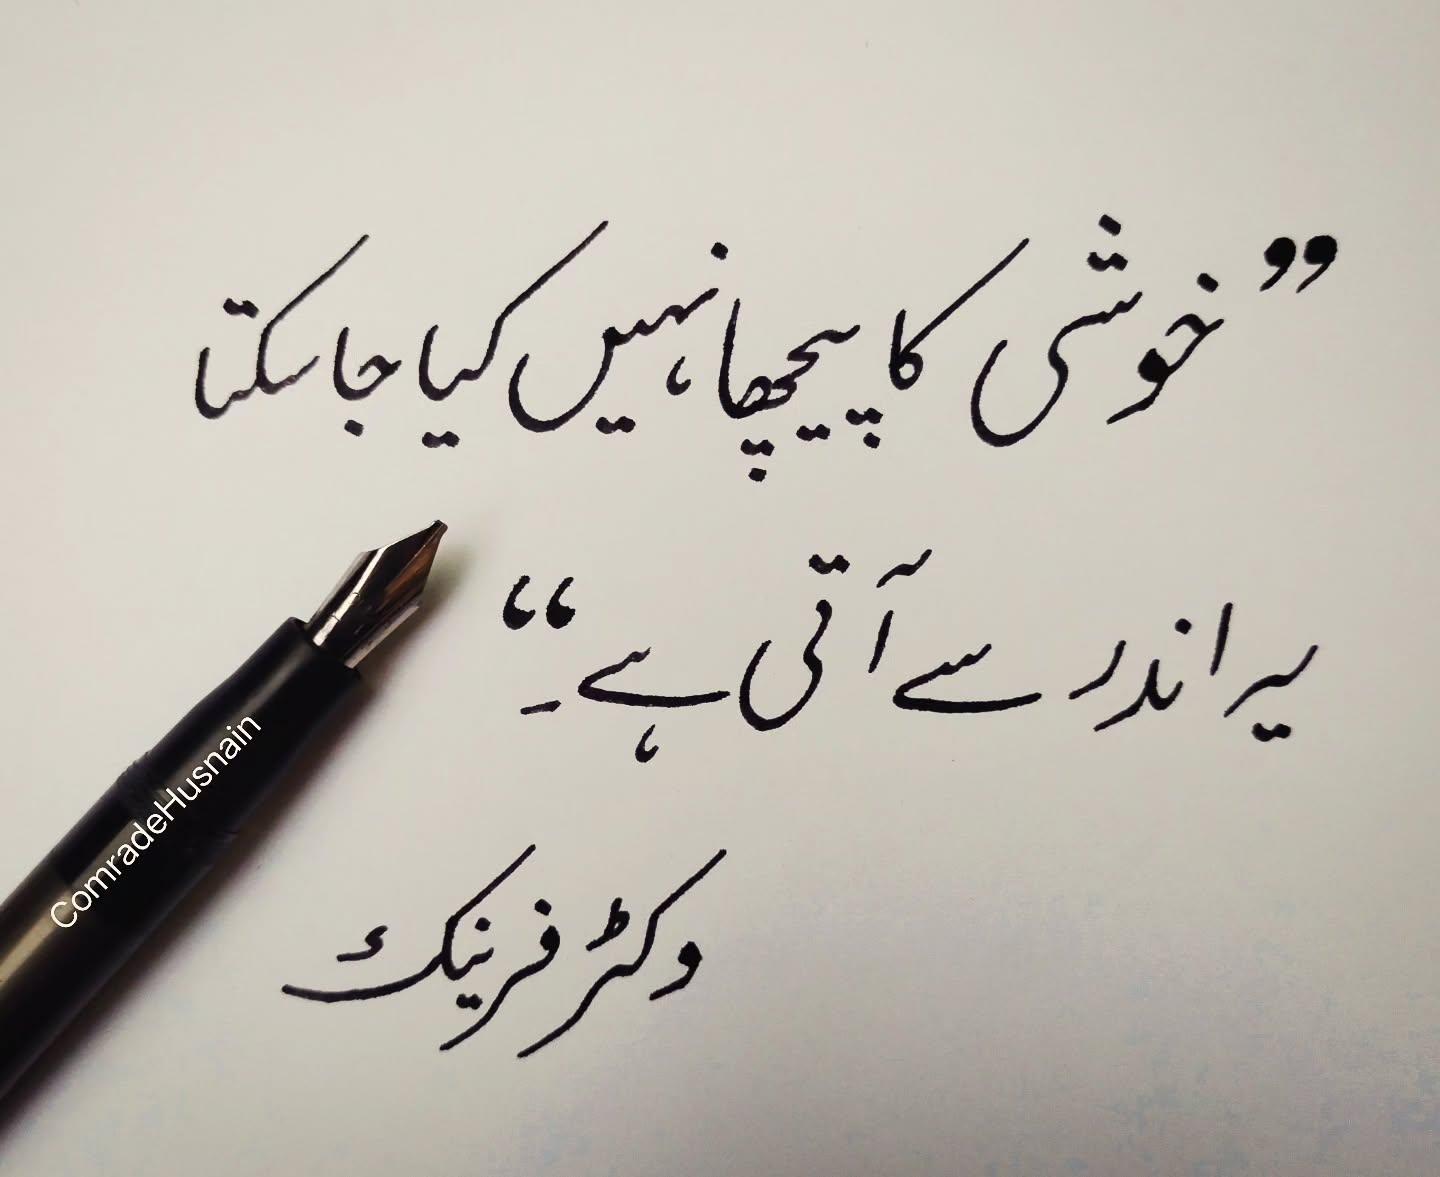 ”خوشی کا پیچھا نہیں کیا جا سکتا
یہ اندر سے آتی ہے۔“
وکٹر فرینک
ComradeHusnain